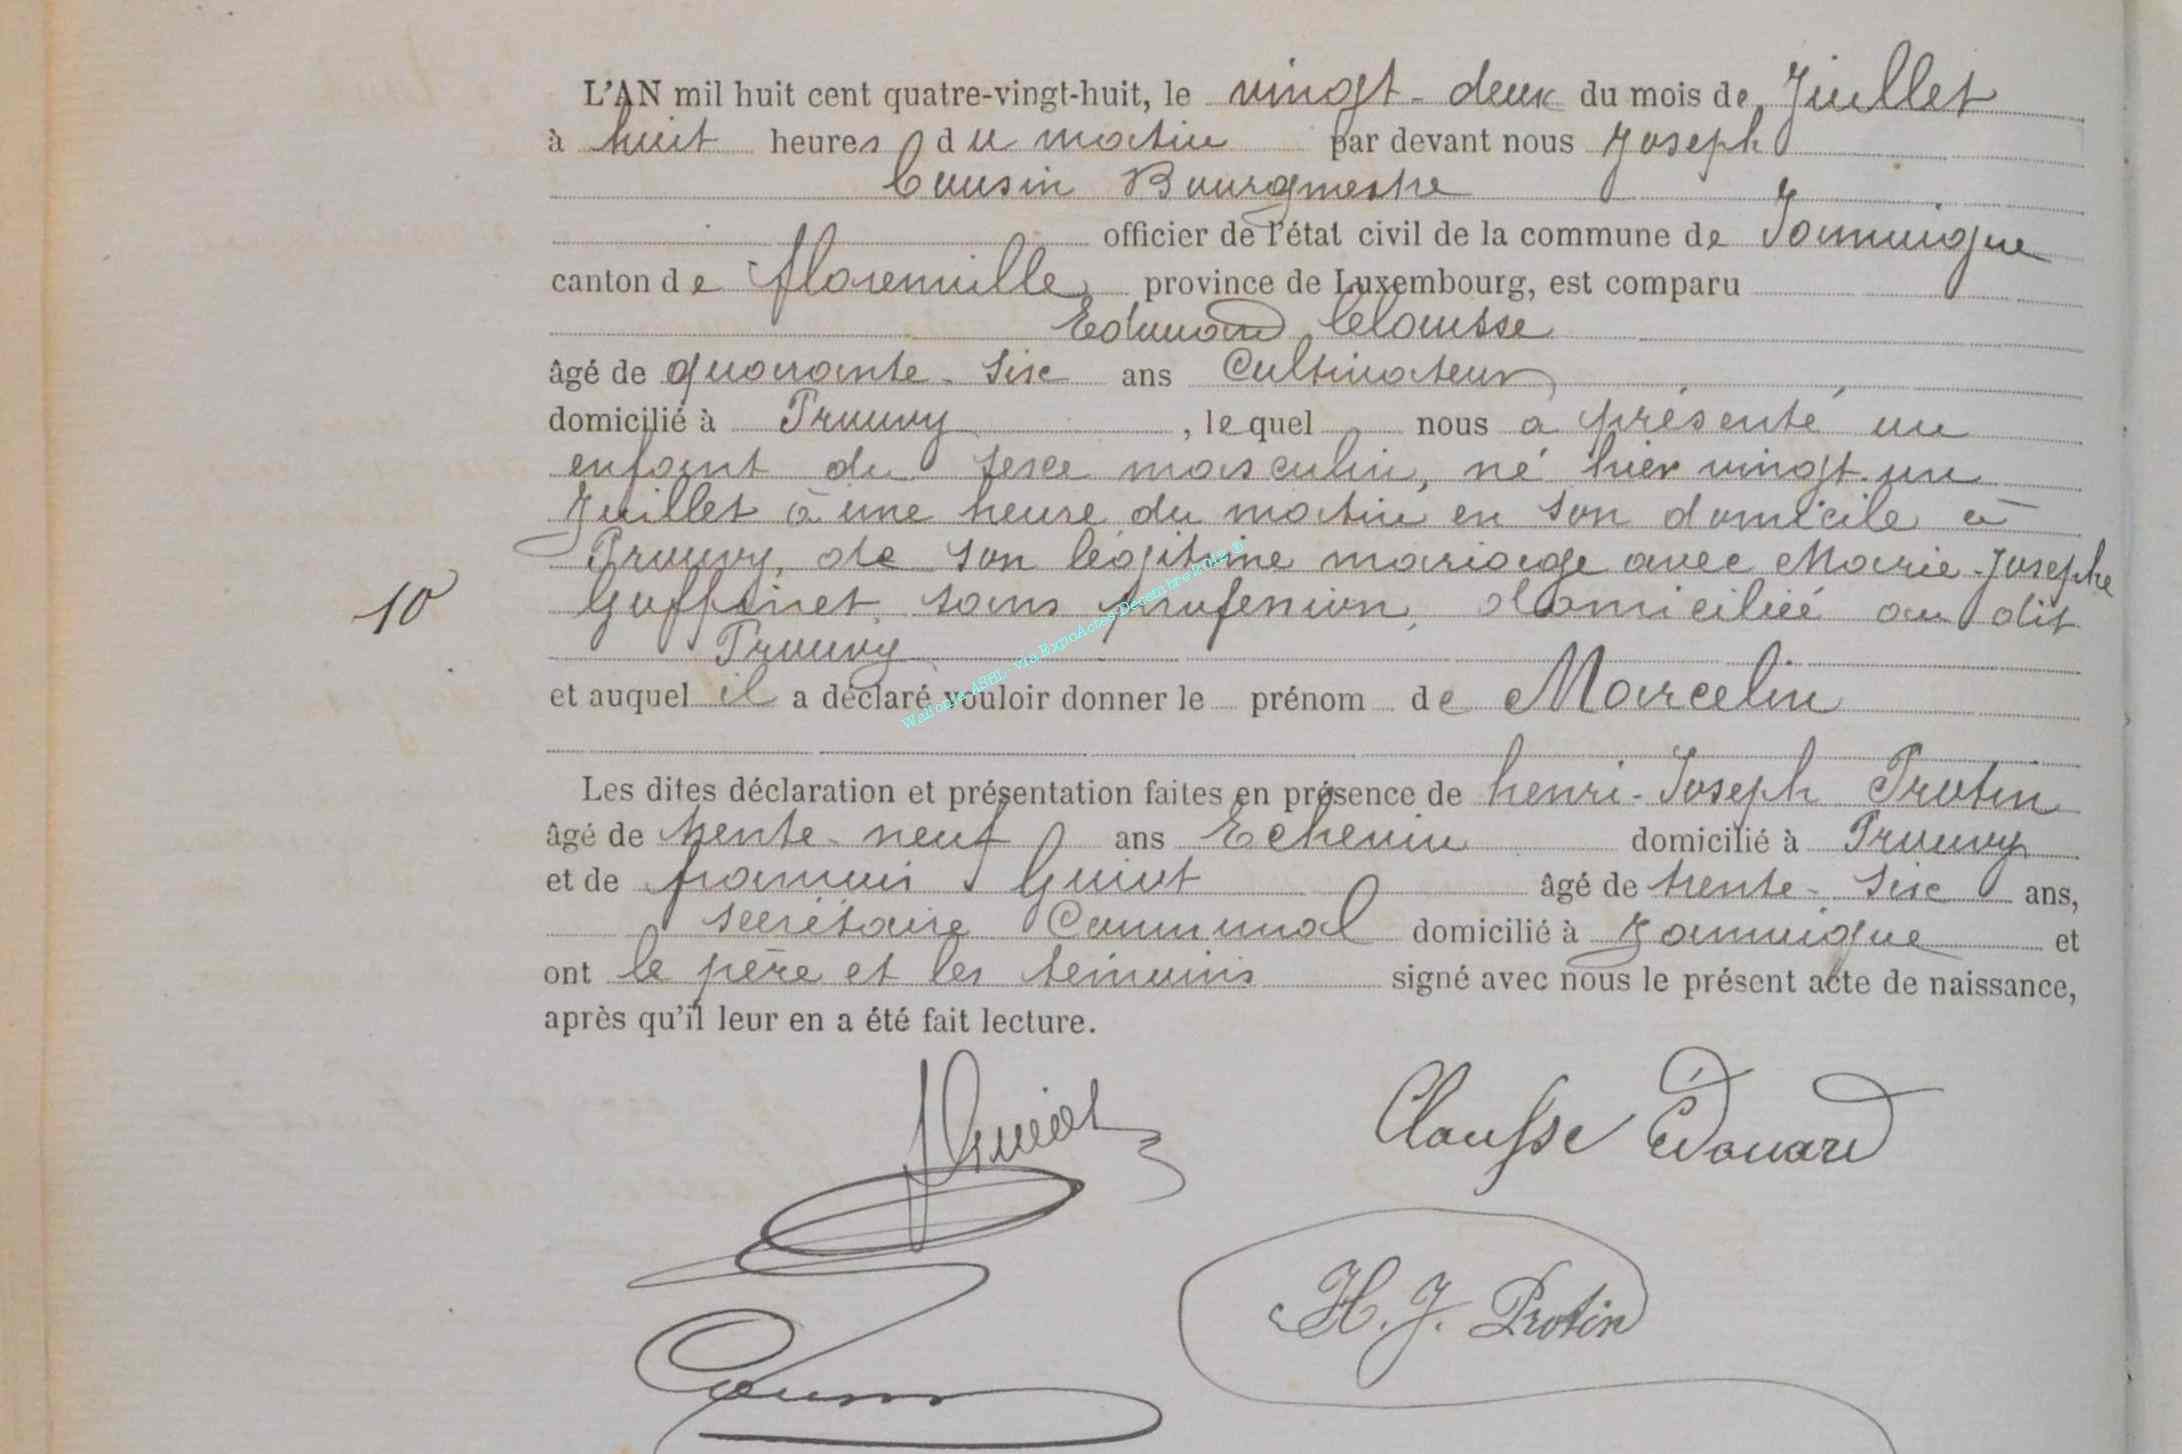 L'AN mil huit cent quatre-vingt-huit, le vingt-deux du mois de Juillet
à huit heures du matin par devant nous Joseph
Cousin Bourgmestre
officier de l'état civil de la commune de Jamoigne
canton de florenville province de Luxembourg, est comparu
Edouard Clausse
âgé de quarante-six ans Cultivateur
domicilié à Prouvy, lequel nous a présenté un
enfant du sexe masculin, né hier vingt-un
Juillet à une heure du matin en son domicile à
Prouvy, de son légitime mariage avec Marie-Josephe
Goffinet, sans profession, domiciliée au dit
Prouvy
10
et auquel il a déclaré vouloir donner le prénom de Marcelin
Les dites déclaration et présentation faites en présence de henri-Joseph Protin
âgé de trente-neuf ans Echevin domicilié à Prouvy
et de françois Guiot âgé de trente-six ans,
secrétaire Communal domicilié à Jamoigne et
ont le père et les témoins signé avec nous le présent acte de naissance,
après qu'il leur en a été fait lecture.
fGuiot
Clausse Edouard
H. J. Protin
Cousin